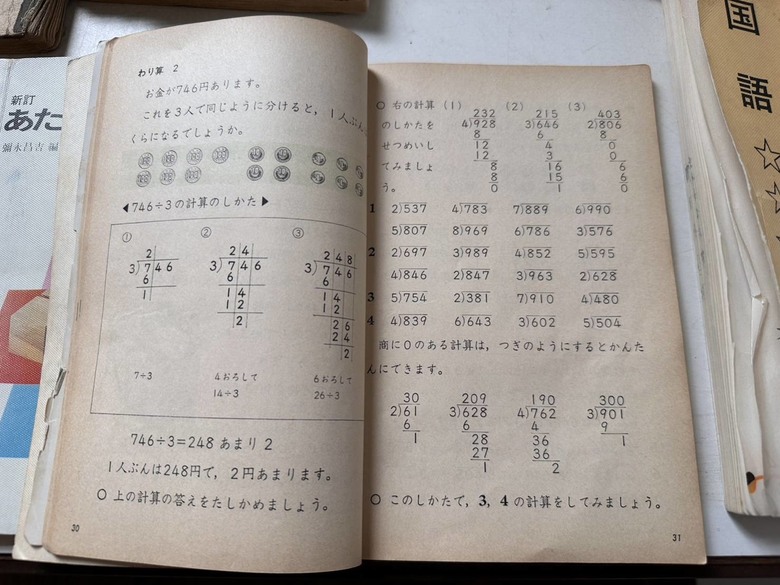 新訂
あた
彌永昌吉 編
わり算 2
お金が746円あります。
これを3人で同じように分けると, 1人ぶん
くらになるでしょうか。
◀746÷3の計算のしかた▶
① ② ③
2 24 248
3)746 3)746 3)746
6 6
1 14 14
12 12
2 26
24
2
7÷3 4おろして 6おろして
14÷3 26÷3
746÷3=248 あまり 2
1人ぶんは248円で, 2円あまります。
○ 上の計算の答えをたしかめましょう。
30
○ 右の計算 (1) (2) (3)
のしかたを
せつめいし
てみましょ
う。
232 215 403
4)928 3)646 2)806
8 6 8
12 4 0
12 3 0
8 16 6
8 15 6
0 1 0
1 2)537 4)783 7)889 6)990
5)807 8)969 6)786 3)576
2 2)697 3)989 4)852 5)595
4)846 2)847 3)963 2)628
3 5)754 2)381 7)910 4)480
4 4)839 6)643 3)602 5)504
商に0のある計算は, つぎのようにするとかんた
んにできます。
30 209 190 300
2)61 3)628 4)762 3)901
6 6 4 9
1 28 36 1
27 36
1 2
○ このしかたで, 3, 4 の計算をしてみましょう。
31
国
語